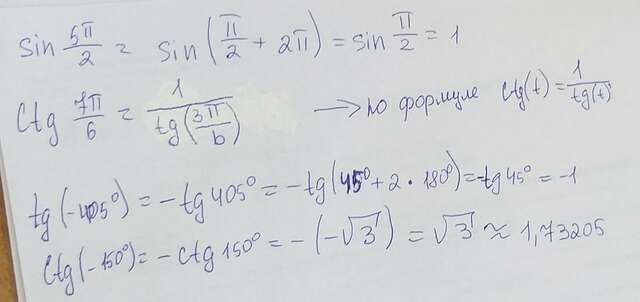 sin 5π/2 = sin(π/2 + 2π) = sin π/2 = 1
Ctg 7π/6 = 1/tg(3π/6) → по формуле Ctg(t) = 1/tg(t)
tg(-405°) = -tg 405° = -tg(45° + 2·180°) = -tg 45° = -1
Ctg(-150°) = -Ctg 150° = -(-√3) = √3 ≈ 1,73205